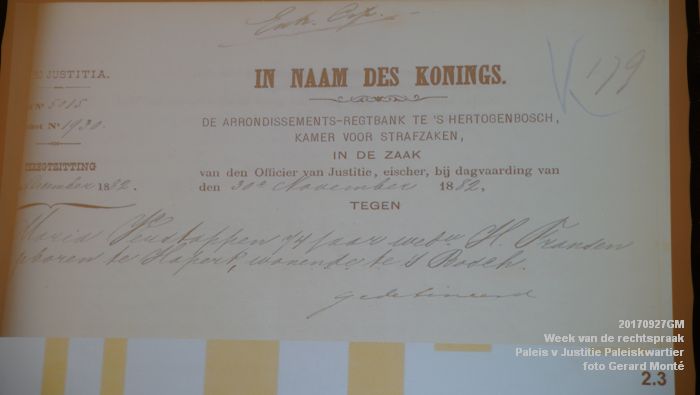 Extr. Cop.
JUSTITIA.
N° 5015
N° 1930.
REGTZITTING
1882.
IN NAAM DES KONINGS.
179
DE ARRONDISSEMENTS-REGTBANK TE 'S HERTOGENBOSCH,
KAMER VOOR STRAFZAKEN,
IN DE ZAAK
van den Officier van Justitie, eischer, bij dagvaarding van
den 30e November 1882.
TEGEN
Maria Verstappen 74 jaar wede H. Fransen
geboren te Hapert, wonende te 's Bosch.
gedetineerd
20170927GM
Week van de rechtspraak
Paleis v Justitie Paleiskwartier
foto Gerard Monté
2.3